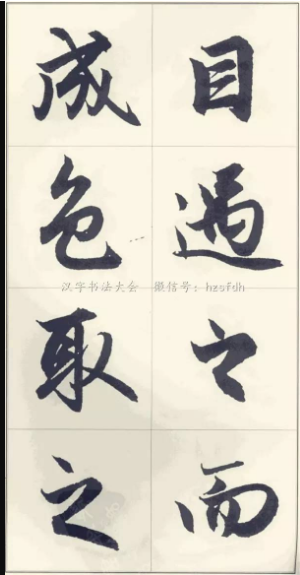 目遇之而
成色取之
汉字书法大会 微信号：hzsfdh